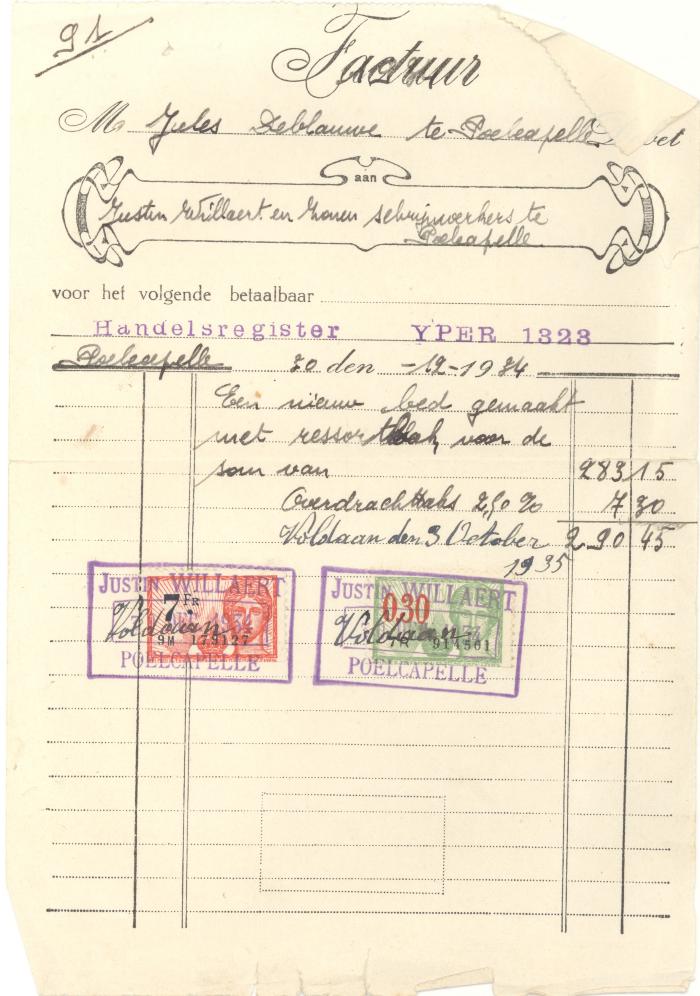 91
Factuur
Mr Jules Deblauwe te Poelcapelle
aan
Justin Willaert en Zonen schrijnwerkers te
Poelcapelle
voor het volgende betaalbaar
Handelsregister YPER 1323
Poelcapelle 30 den -12-1934
Een nieuw bed gemaakt
met ressortbak, voor de
som van 283,15
Overdrachttaks 2,50 % 7 30
Voldaan den 3 October 290 45
1935
JUSTIN WILLAERT
7 FR
Voldaan
9M 179127
POELCAPELLE
JUSTIN WILLAERT
0.30
Voldaan
914501
POELCAPELLE